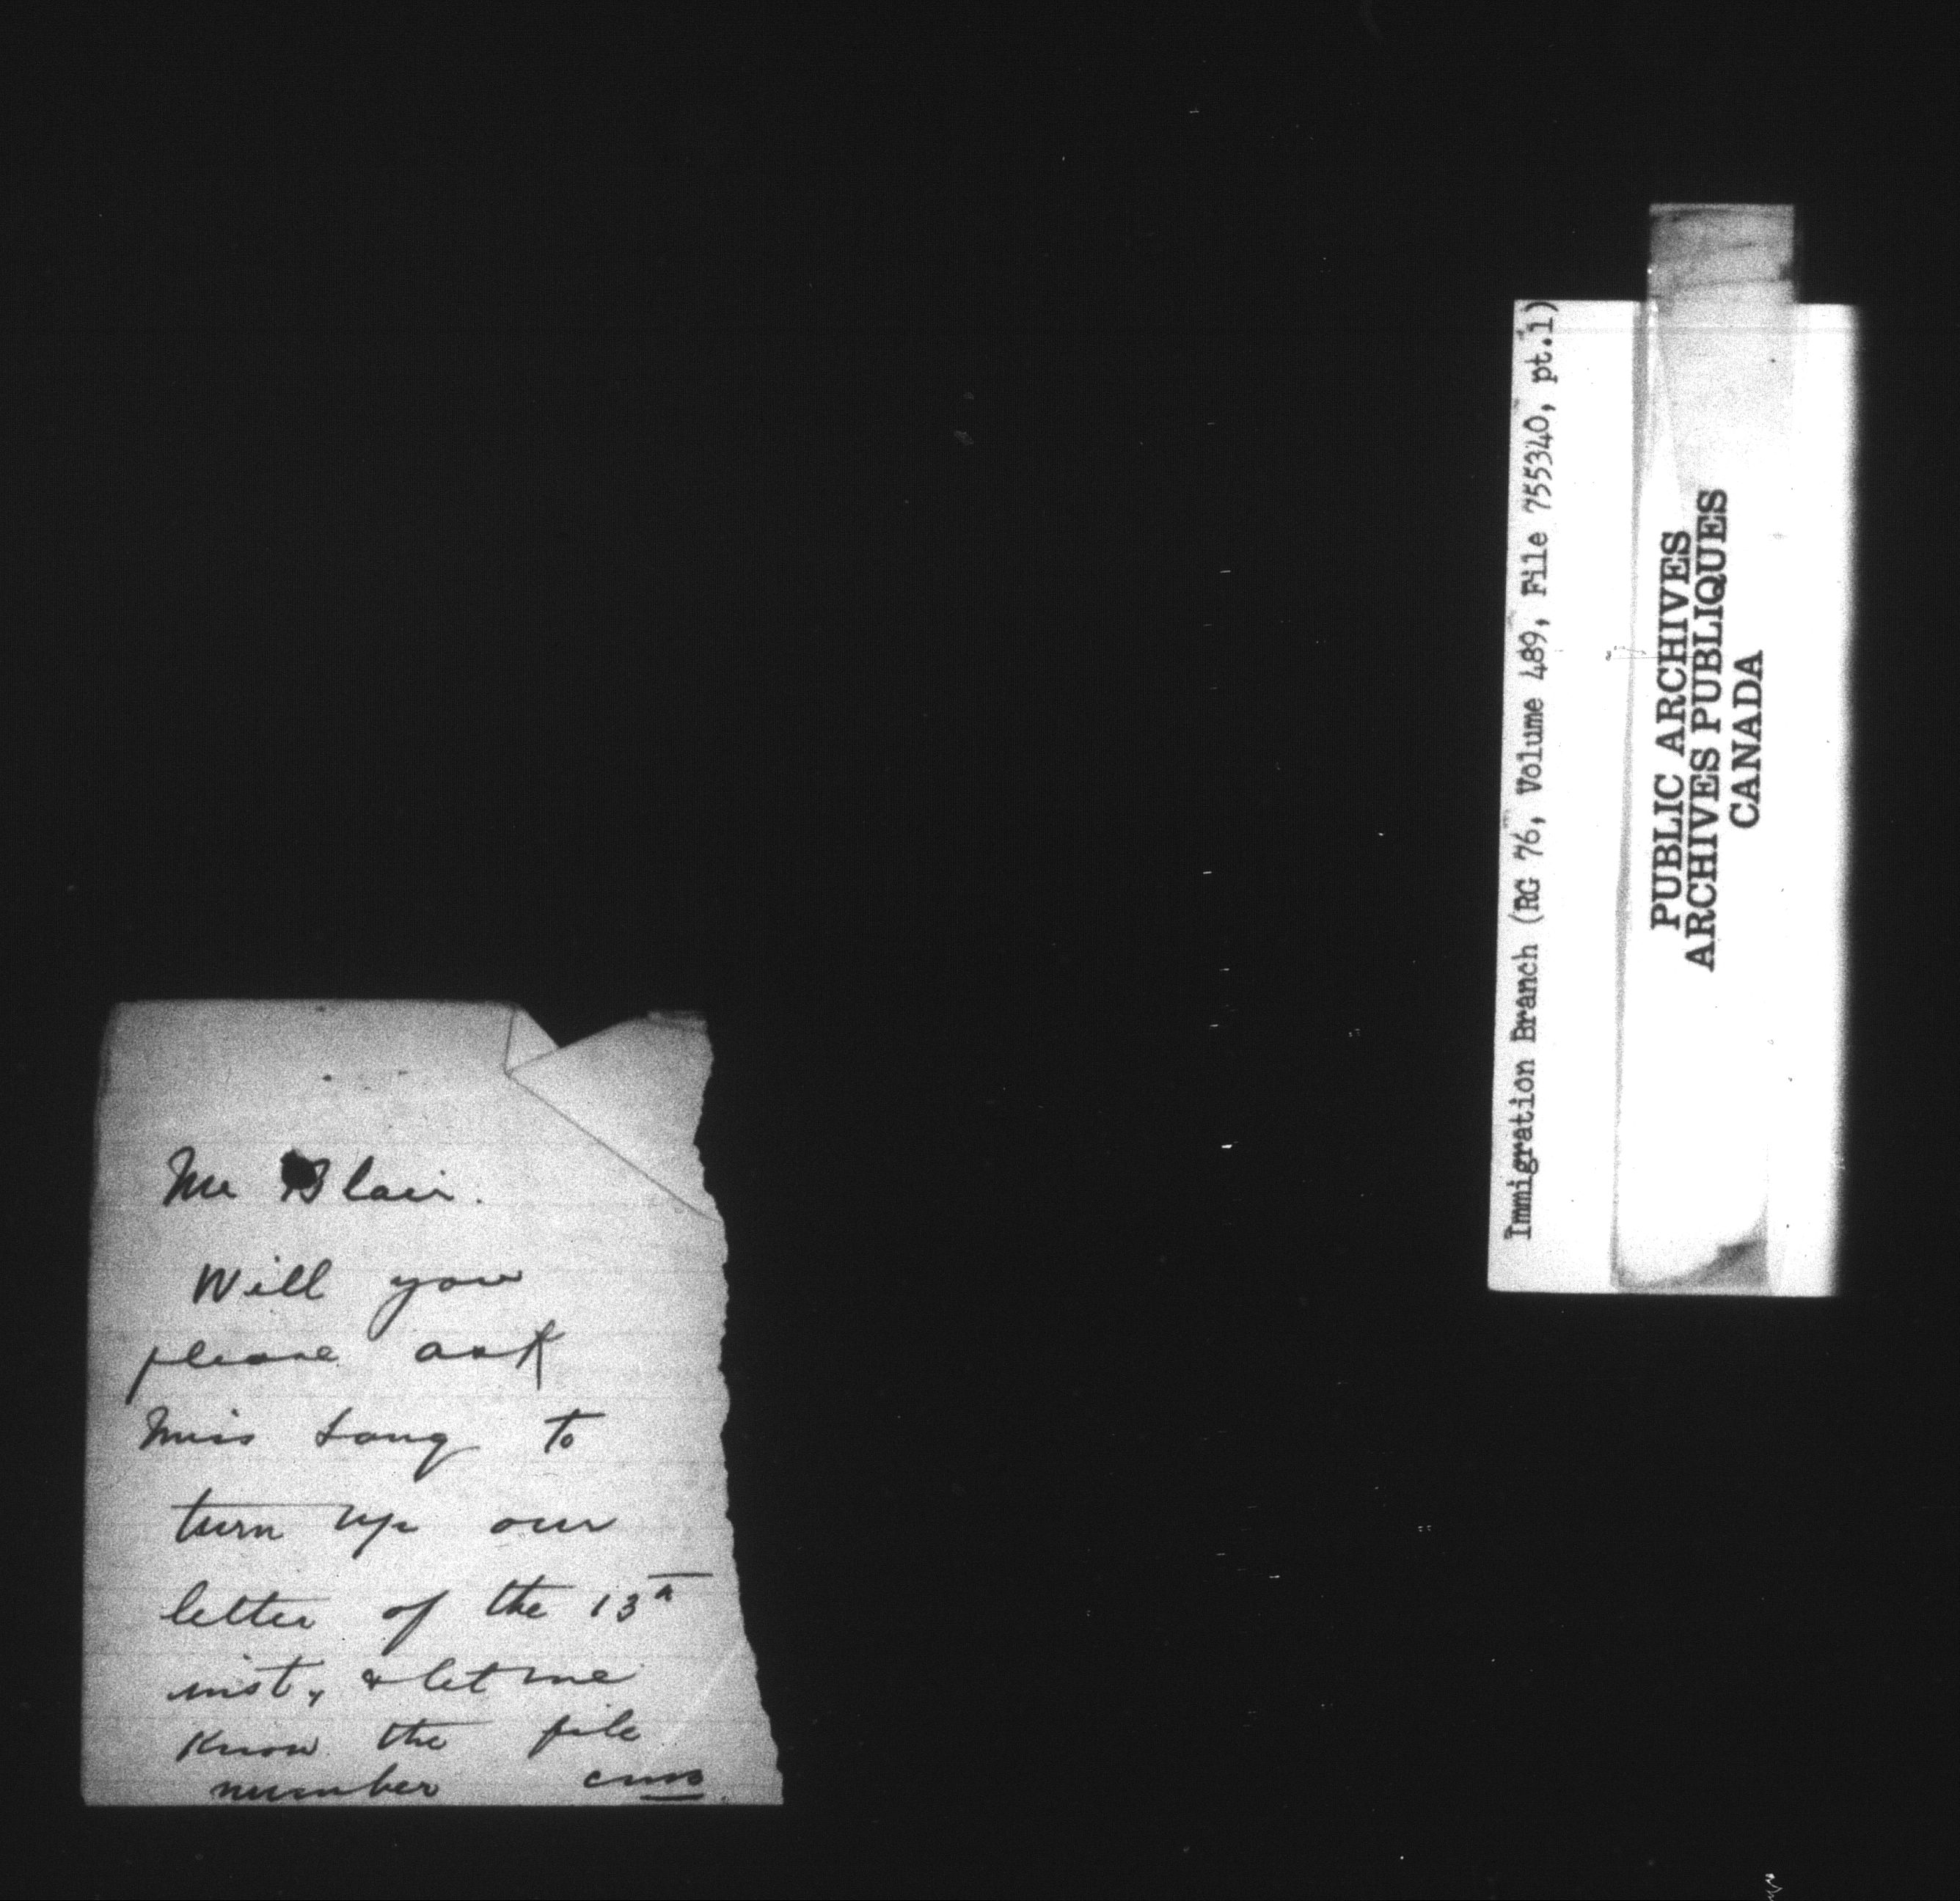 Mr Blair.
Will you
please ask
Miss Long to
turn up our
letter of the 13th
inst, & let me
know the file
number
Immigration Branch (RG 76, Volume 489, File 755340, pt.1)
PUBLIC ARCHIVES
ARCHIVES PUBLIQUES
CANADA